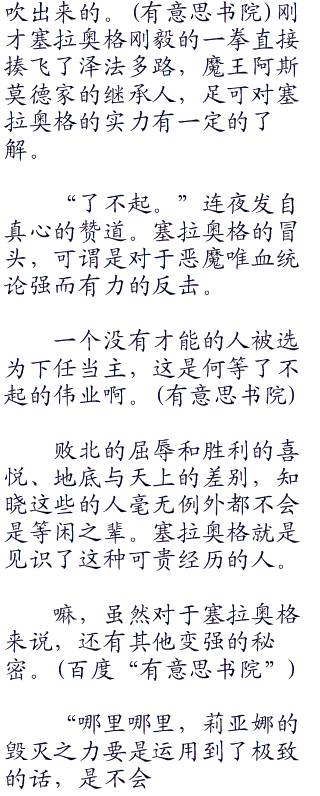 吹出来的。(有意思书院)刚
才塞拉奥格刚毅的一拳直接
揍飞了泽法多路，魔王阿斯
莫德家的继承人，足可对塞
拉奥格的实力有一定的了
解。
“了不起。”连夜发自
真心的赞道。塞拉奥格的冒
头，可谓是对于恶魔唯血统
论强而有力的反击。
一个没有才能的人被选
为下任当主，这是何等了不
起的伟业啊。(有意思书院)
败北的屈辱和胜利的喜
悦、地底与天上的差别，知
晓这些的人毫无例外都不会
是等闲之辈。塞拉奥格就是
见识了这种可贵经历的人。
嘛，虽然对于塞拉奥格
来说，还有其他变强的秘
密。(百度“有意思书院”)
“哪里哪里，莉亚娜的
毁灭之力要是运用到了极致
的话，是不会